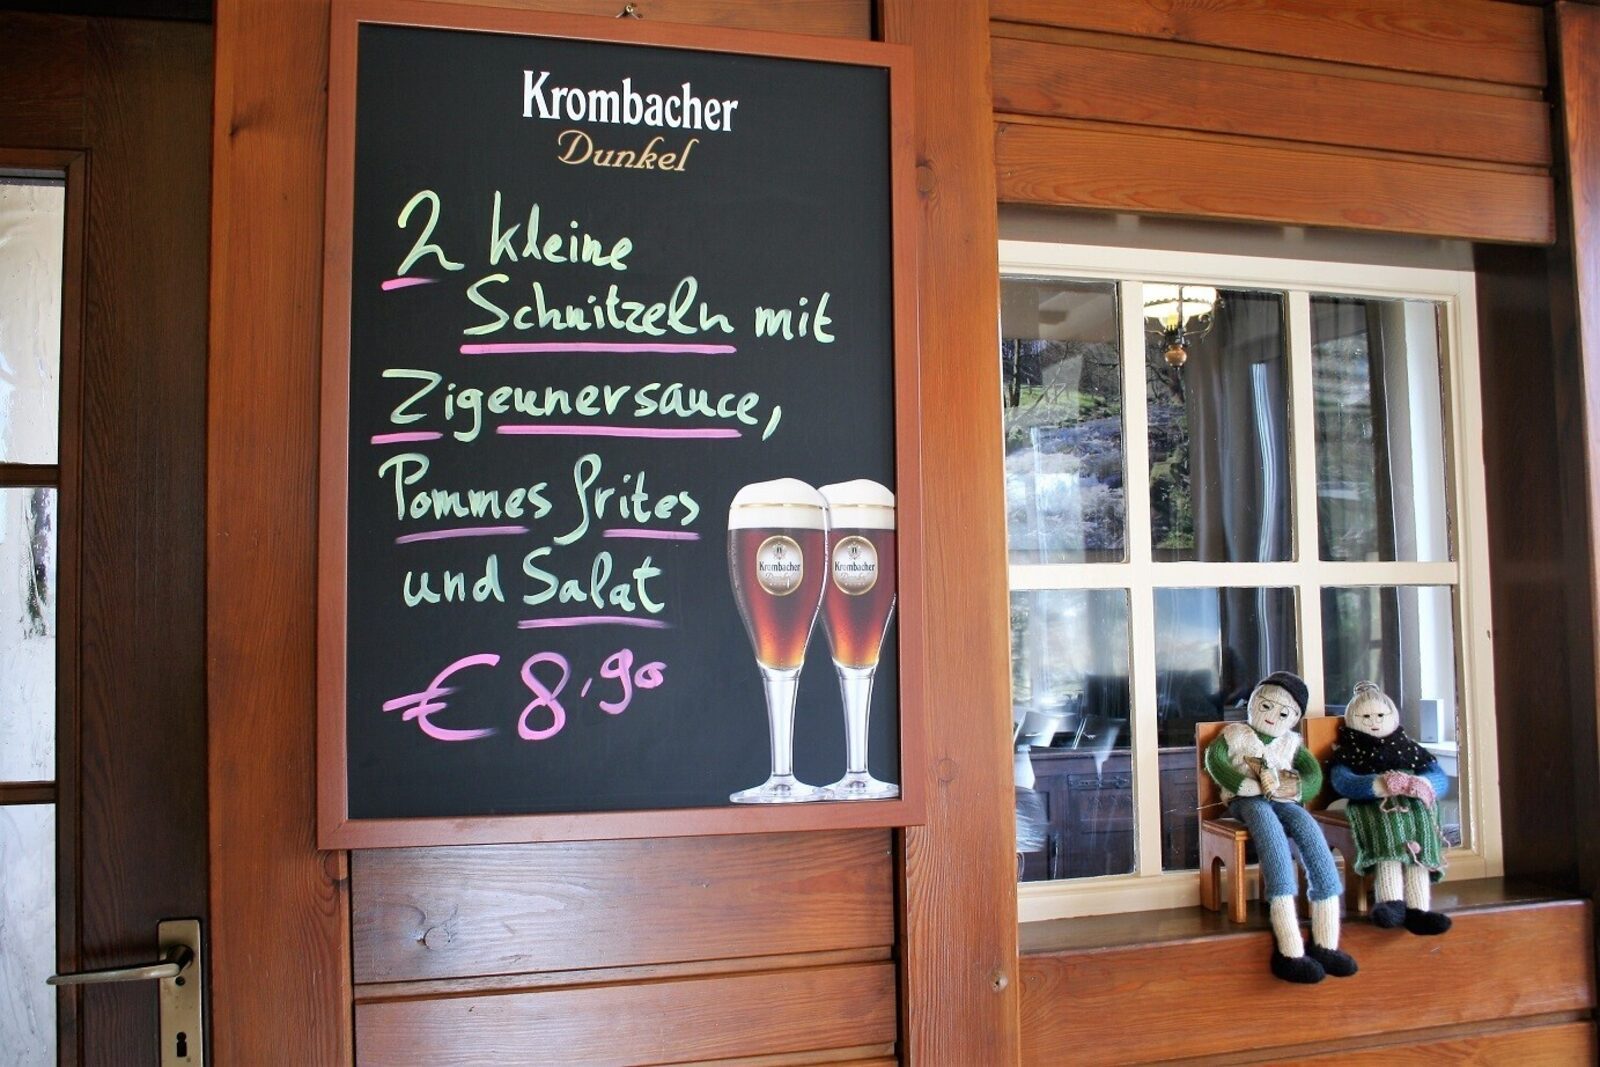 Krombacher
Dunkel
2 kleine
Schnitzeln mit
Zigeunersauce,
Pommes frites
und Salat
€ 8,90
Krombacher
Dunkel
Krombacher
Dunkel